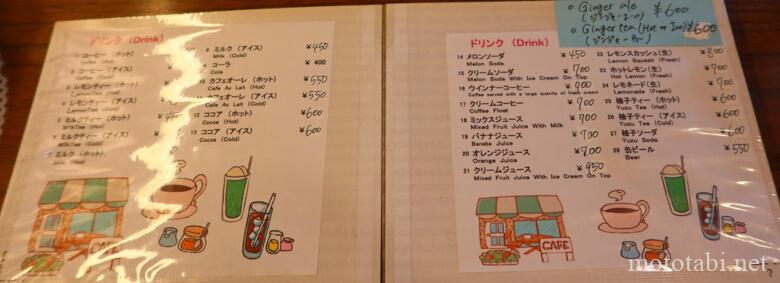 ドリンク (Drink)
1 コーヒー (ホット)
Coffee (Hot)
2 コーヒー (アイス)
Coffee (Cold)
3 レモンティー (ホット)
LemonTea (Hot)
4 レモンティー (アイス)
LemonTea (Cold)
5 ミルクティー (ホット)
MilkTea (Hot)
6 ミルクティー (アイス)
MilkTea (Cold)
7 ミルク (ホット)
Milk (Hot)
8 ミルク (アイス) ¥450
Milk (Cold)
9 コーラ ¥ 400
Cola
10 カフェオーレ (ホット) ¥550
Cafe Au Lait (Hot)
11 カフェオーレ (アイス) ¥550
Cafe Au Lait (Cold)
12 ココア (ホット) ¥600
Cocoa (Hot)
13 ココア (アイス) ¥600
Cocoa (Cold)
CAFE
Ginger ale ¥600
(ジンジャーエール)
Ginger tea (Hot or Ice) ¥600
(ジンジャーティー)
ドリンク (Drink)
14 メロンソーダ ¥450
Melon Soda
15 クリームソーダ ¥700
Melon Soda With Ice Cream On Top
16 ウインナーコーヒー ¥700
Coffee served with a large quantity of fresh cream
17 クリームコーヒー ¥700
Coffee Float
18 ミックスジュース ¥700
Mixed Fruit Juice With Milk
19 バナナジュース ¥700
Banaba Juice
20 オレンジジュース ¥700
Orange Juice
21 クリームジュース ¥950
Mixed Fruit Juice With Ice Cream On Top
22 レモンスカッシュ(生) ¥800
Lemon Squash (Fresh)
23 ホットレモン(生) ¥700
Hot Lemon (Fresh)
24 レモネード(生) ¥700
Lemonade (Fresh)
25 柚子ティー (ホット) ¥700
Yuzu Tea (Hot)
26 柚子ティー (アイス) ¥700
Yuzu Tea (Cold)
27 柚子ソーダ ¥700
Yuzu Soda
28 缶ビール ¥550
Beer
CAFE
mototabi.net